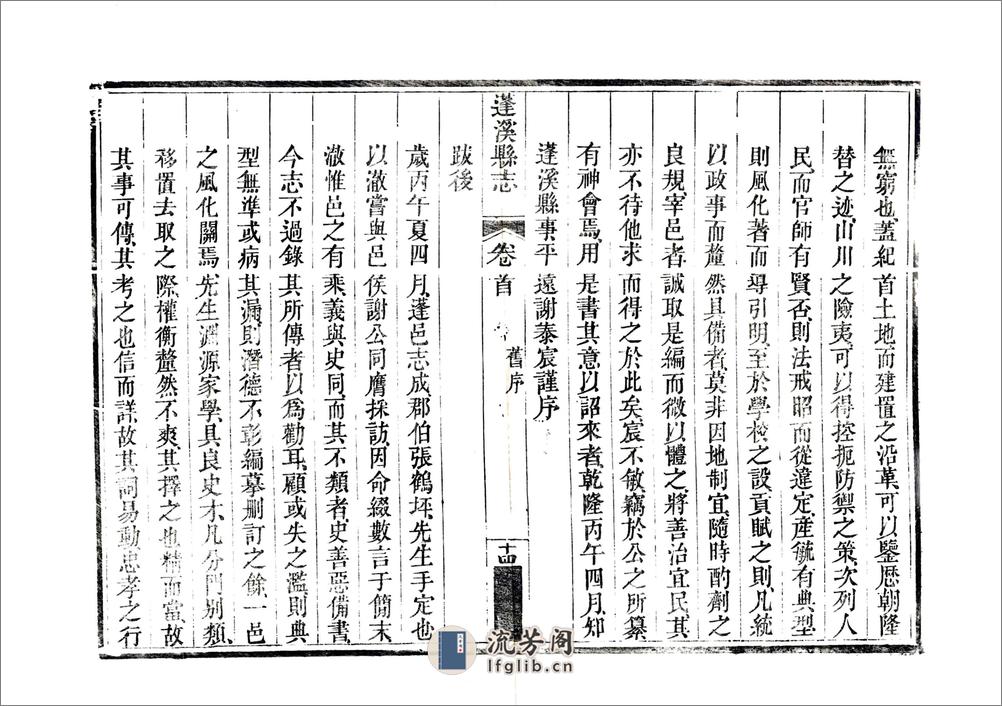 無窮也蓋紀首土地而建置之沿革可以鑒歷朝隆
替之迹山川之險夷可以得控扼防禦之策次列人
民而官師有賢否則法戒昭而從違定產毓有典型
則風化著而導引明至於學校之設貢賦之則凡統
以政事而釐然具備者莫非因地制宜隨時酌劑之
良規宰邑者誠取是編而微以體之將善治宜民其
亦不待他求而得之於此矣宸不敏竊於公之所纂
有神會焉用是書其意以詔來者乾隆丙午四月知
蓬溪縣事平遠謝泰宸謹序
蓬溪縣志 卷首 舊序 十四
跋後
歲丙午夏四月蓬邑志成郡伯張鶴坪先生手定也
以澈嘗與邑侯謝公同膺採訪因命綴數言于簡末
澈惟邑之有乘義與史同而其不類者史善惡備書
今志不過錄其所傳者以為勸耳顧或失之濫則典
型無準或病其漏則潛德不彰編摹刪訂之餘一邑
之風化關焉先生淵源家學具良史才凡分門別類
移置去取之際權衡釐然不爽其擇之也精而當故
其事可傳其考之也信而詳故其詞易動忠孝之行
流芳阁
lfglib.cn